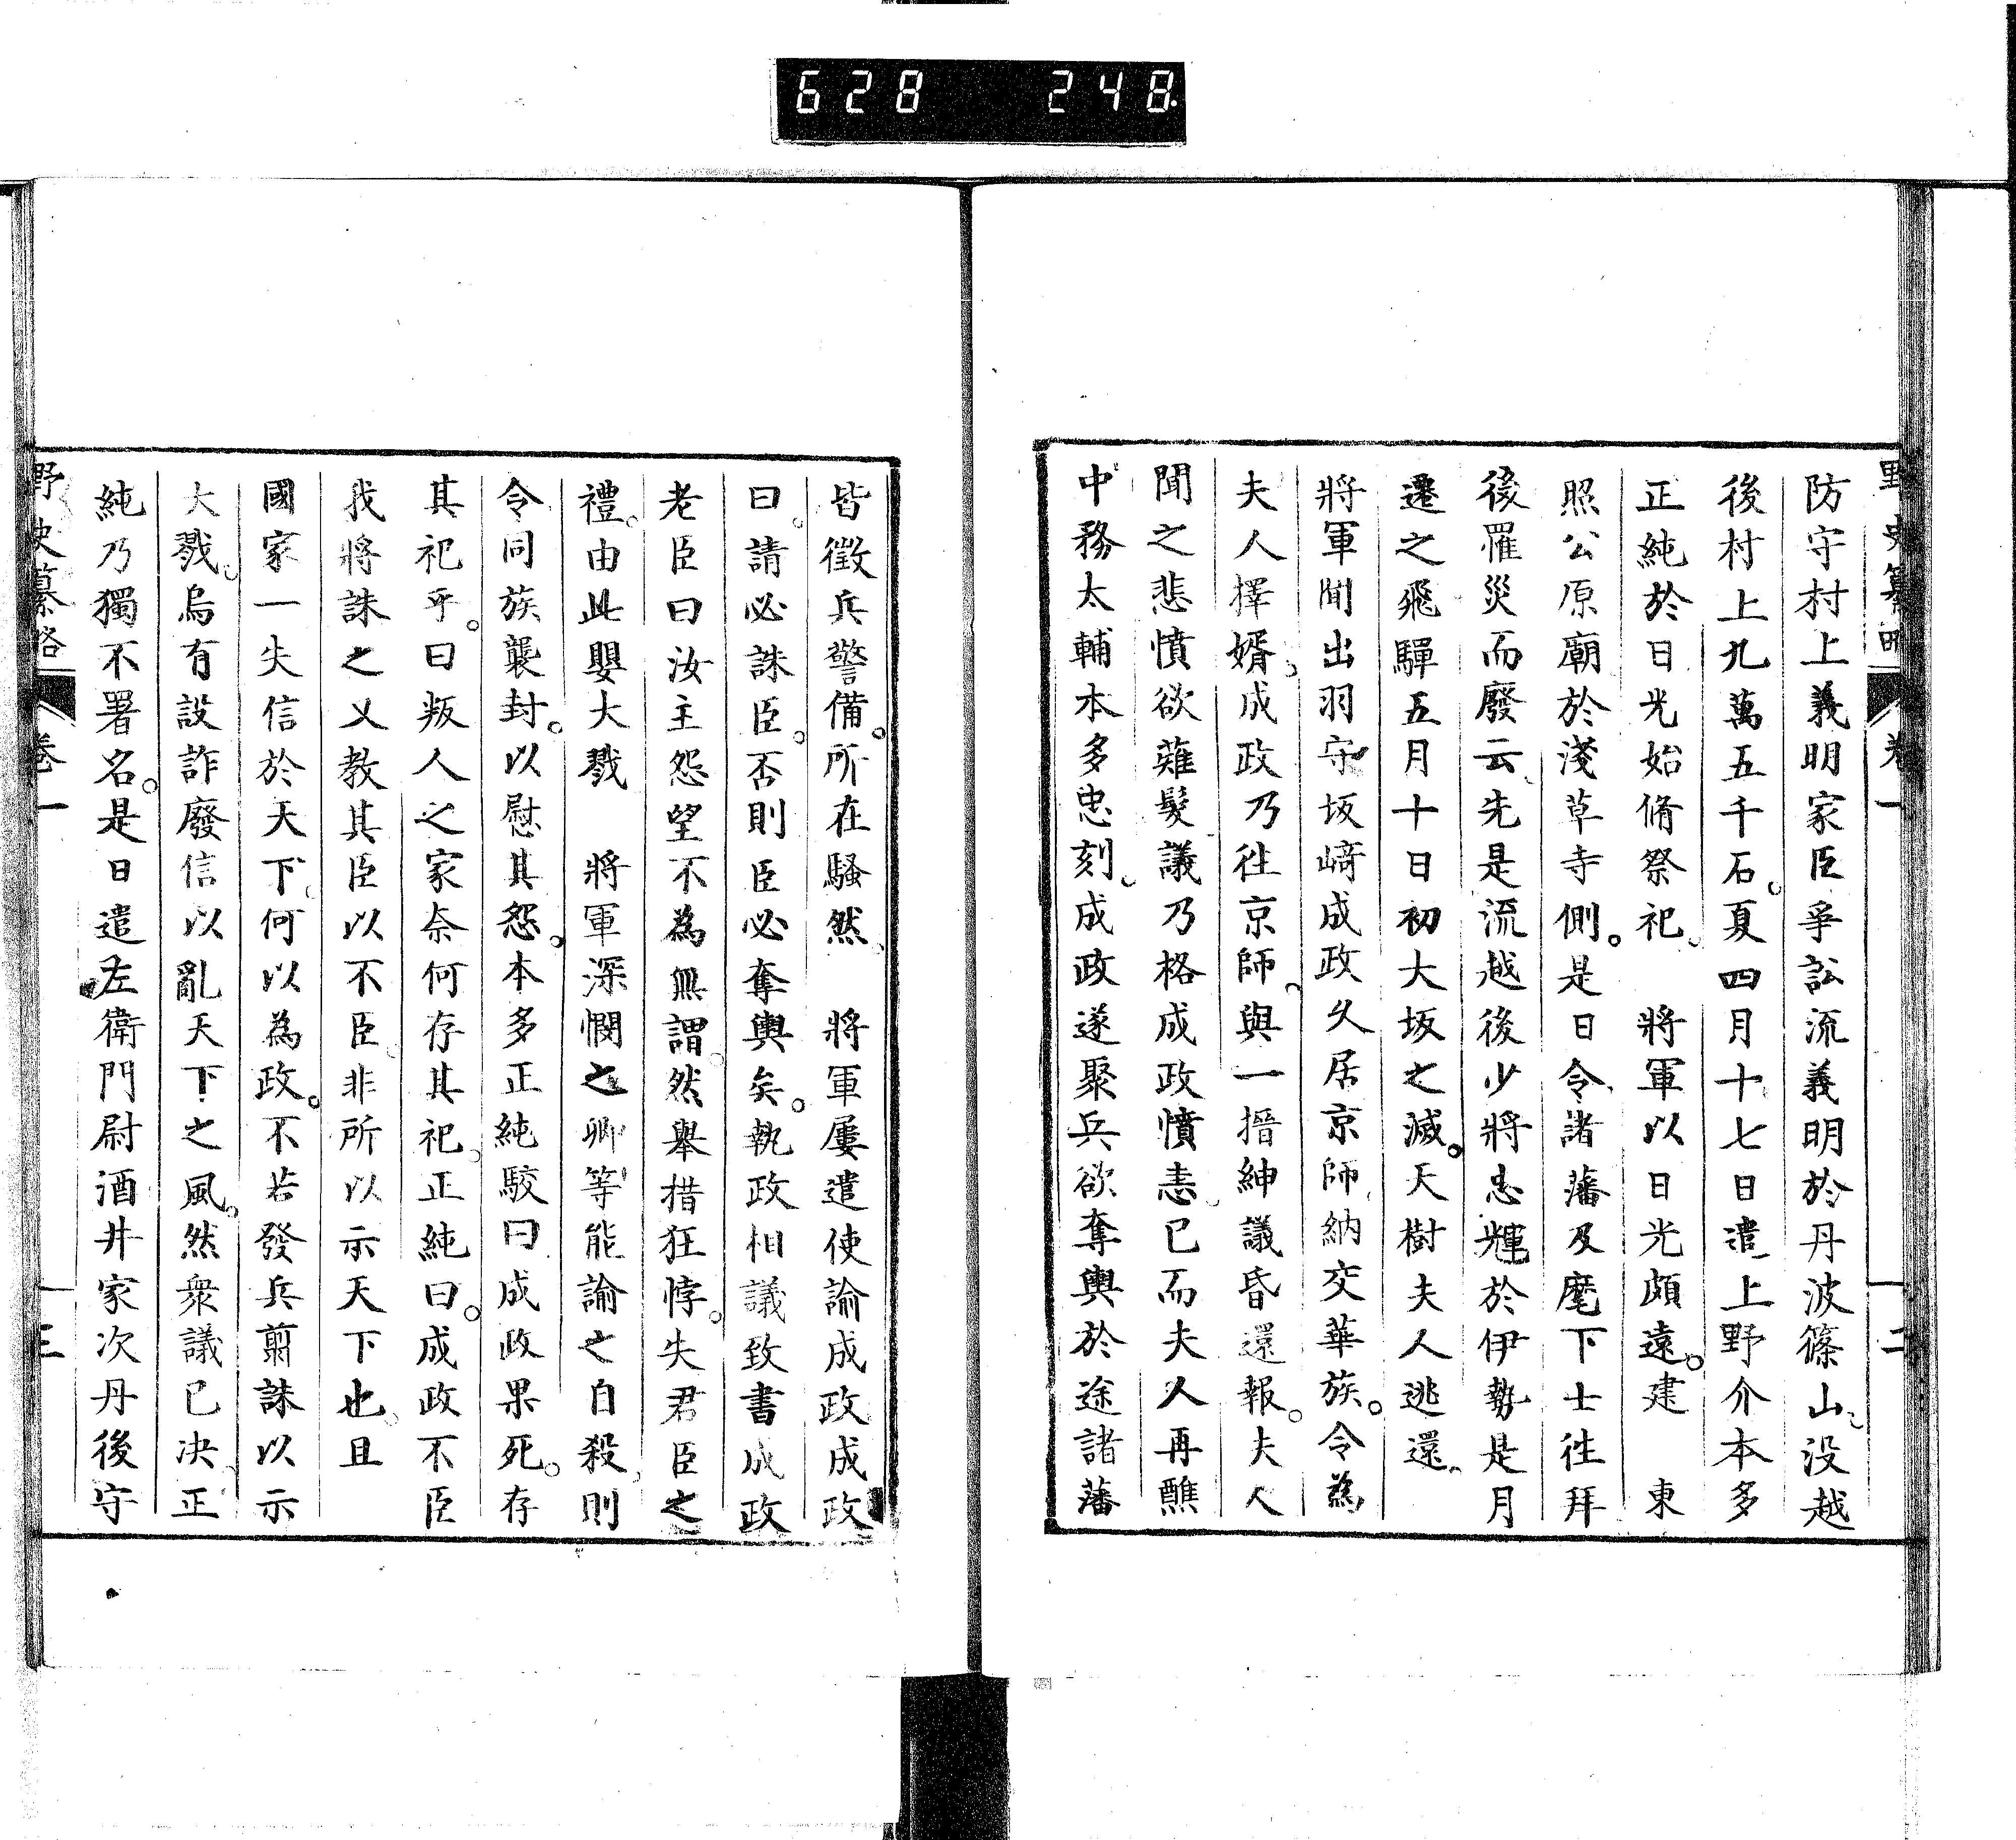 628 248
野史纂略 卷一 十二
防守村上義明家臣爭訟流義明於丹波篠山没越
後村上九萬五千石。夏四月十七日遣上野介本多
正純於日光始脩祭祀 將軍以日光頗遠。建 東
照公原廟於淺草寺側。是日令諸藩及麾下士徃拜
後罹災而廢云先是流越後少將忠輝於伊勢是月
遷之飛驒五月十日初大坂之滅。天樹夫人逃還
將軍聞出羽守坂﨑成政久居京師納交華族。令為
夫人擇婿成政乃徃京師與一搢紳議昏還報。夫人
聞之悲憤欲薙髮議乃格成政憤恚已而夫人再醮
中務太輔本多忠刻成政遂聚兵欲奪輿於途諸藩
皆徵兵警備。所在騷然 將軍屢遣使諭成政成政
曰請必誅臣。否則臣必奪輿矣。執政相議致書成政
老臣曰汝主怨望不為無謂然舉措狂悖。失君臣之
禮。由此嬰大戮 將軍深憫之卿等能諭之自殺則
令同族襲封。以慰其怨。本多正純駁曰成政果死。存
其祀乎。曰叛人之家奈何存其祀正純曰。成政不臣
我將誅之乂教其臣以不臣非所以示天下也且
國家一失信於天下何以為政。不若發兵翦誅以示
大戮烏有設詐廢信以亂天下之風。然衆議已决正
純乃獨不署名。是日遣左衛門尉酒井家次丹後守
野史纂略 卷一 十三